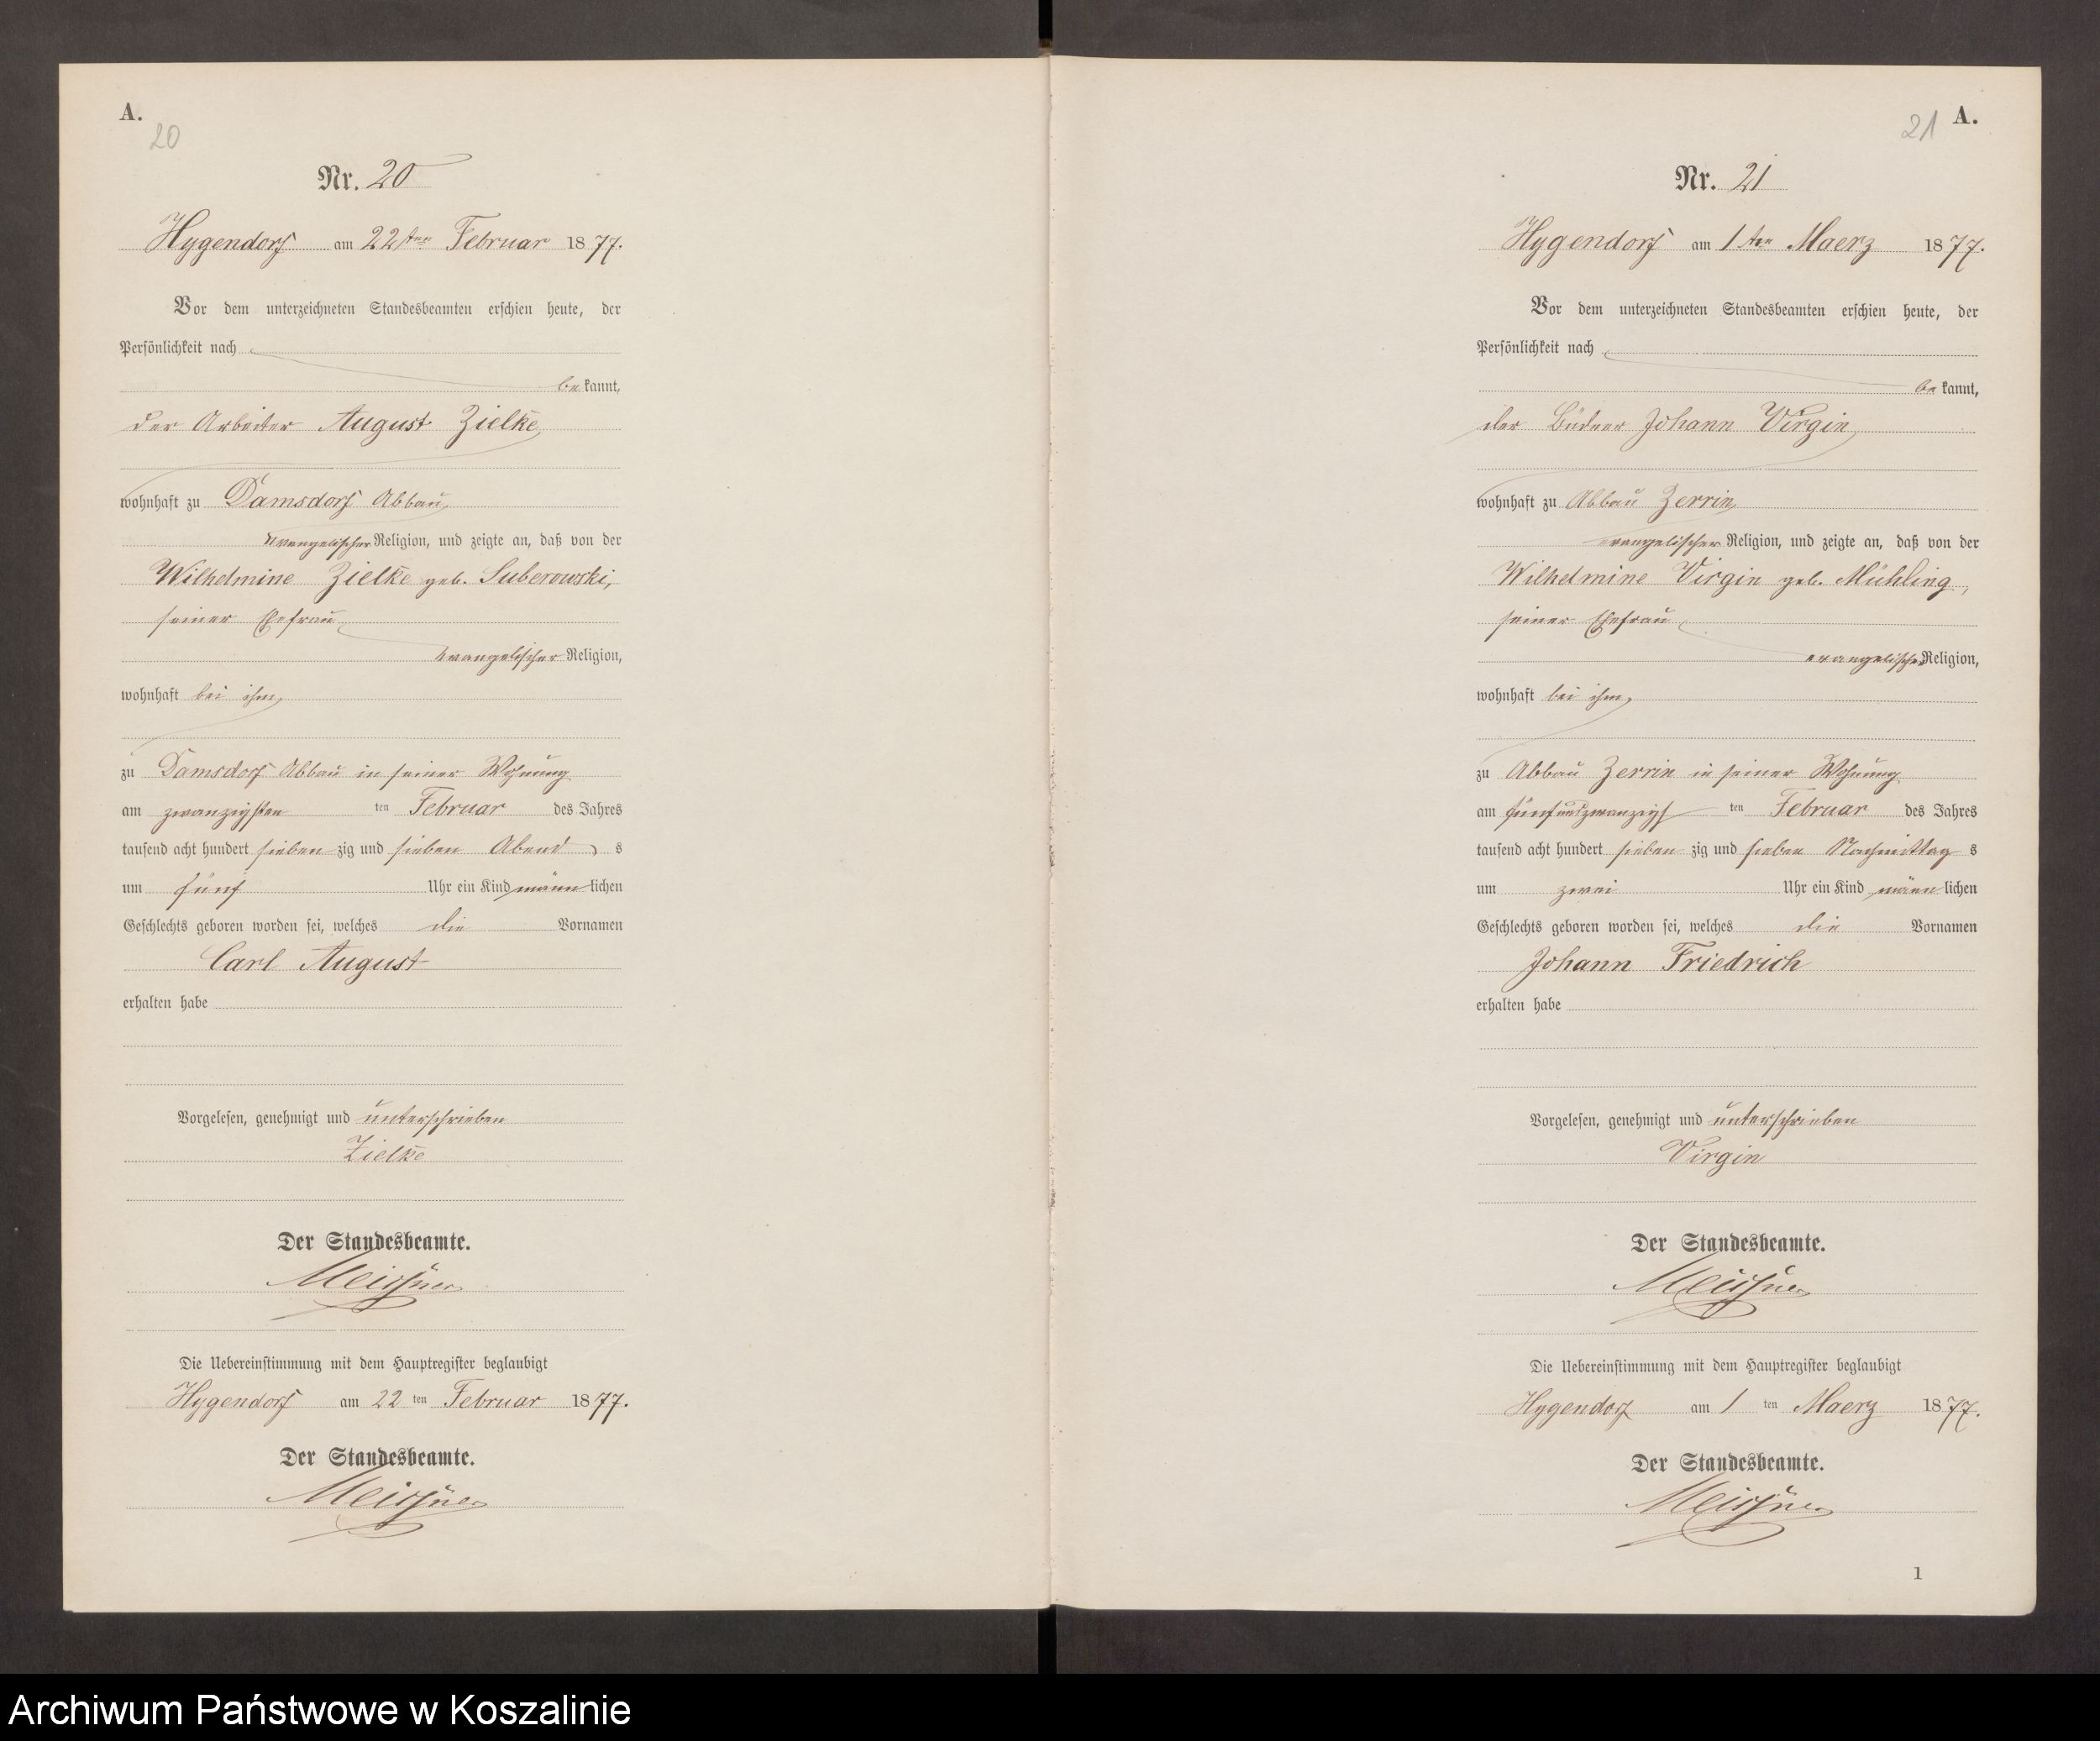 A.
20
Nr. 20
Hygendorf am 22ten Februar 1877.
Vor dem unterzeichneten Standesbeamten erschien heute, der
Persönlichkeit nach
bekannt,
der Arbeiter August Zielke,
wohnhaft zu Damsdorf Abbau,
evangelischer Religion, und zeigte an, daß von der
Wilhelmine Zielke geb. Suberowski,
seiner Ehefrau
evangelischer Religion,
wohnhaft bei ihm,
zu Damsdorf Abbau in seiner Wohnung
am zwanzigsten ten Februar des Jahres
tausend acht hundert sieben zig und sieben Abend s
um fünf Uhr ein Kind männlichen
Geschlechts geboren worden sei, welches die Vornamen
Carl August
erhalten habe
Vorgelesen, genehmigt und unterschrieben
Zielke
Der Standesbeamte.
Meissner
Die Uebereinstimmung mit dem Hauptregister beglaubigt
Hygendorf am 22 ten Februar 1877.
Der Standesbeamte.
Meissner
21 A.
Nr. 21
Hygendorf am 1ten Maerz 1877.
Vor dem unterzeichneten Standesbeamten erschien heute, der
Persönlichkeit nach
bekannt,
der Büdner Johann Virgin,
wohnhaft zu Abbau Zerrin,
evangelischer Religion, und zeigte an, daß von der
Wilhelmine Virgin geb. Mühling,
seiner Ehefrau
evangelischer Religion,
wohnhaft bei ihm,
zu Abbau Zerrin in seiner Wohnung
am fünfundzwanzigs ten Februar des Jahres
tausend acht hundert sieben zig und sieben Nachmittag s
um zwei Uhr ein Kind männlichen
Geschlechts geboren worden sei, welches die Vornamen
Johann Friedrich
erhalten habe
Vorgelesen, genehmigt und unterschrieben
Virgin
Der Standesbeamte.
Meissner
Die Uebereinstimmung mit dem Hauptregister beglaubigt
Hygendorf am 1 ten Maerz 1877.
Der Standesbeamte.
Meissner
1
Archiwum Państwowe w Koszalinie